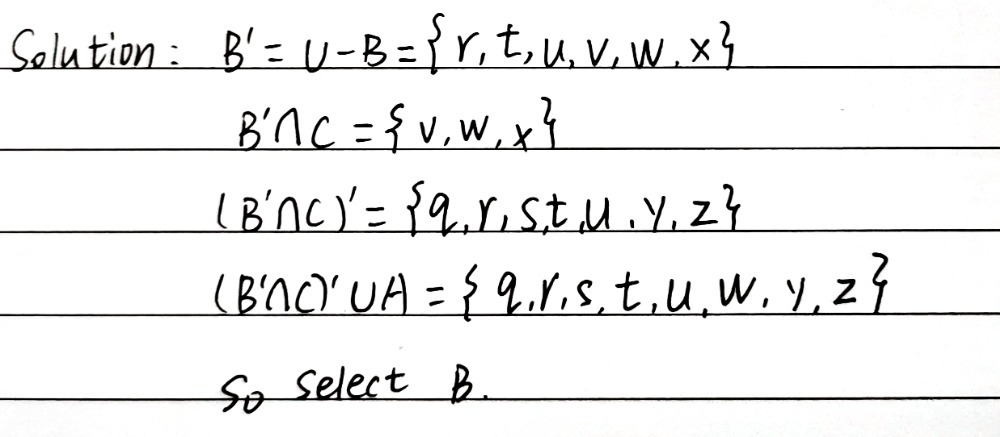 Solution: B' = U - B = {r, t, u, v, w, x}
B'∩C = {v, w, x}
(B'∩C)' = {q, r, s, t, u, y, z}
(B'∩C)' ∪ A = {q, r, s, t, u, w, y, z}
So select B.